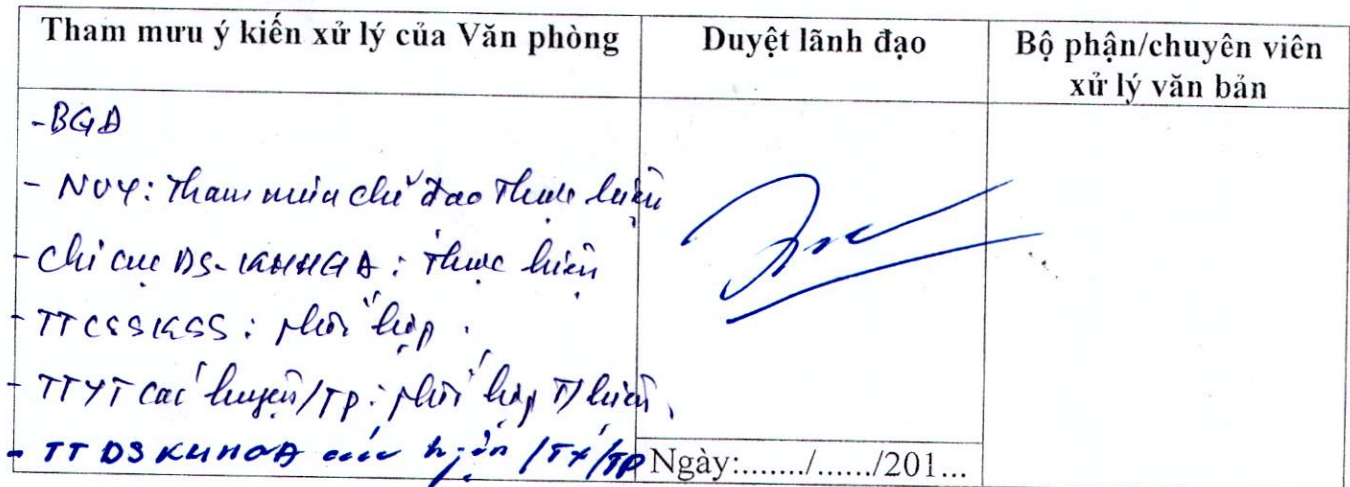 Tham mưu ý kiến xử lý của Văn phòng
Duyệt lãnh đạo
Bộ phận/chuyên viên
xử lý văn bản
- BGĐ
- NVY: Tham mưu chỉ đạo thực hiện
- Chi cục DS-KHHGĐ: thực hiện
- TTCSSKSS: phối hợp.
- TTYT các huyện/TP: phối hợp T/hiện.
- TT DSKHHGĐ các huyện/TX/TP
Ngày:....../....../201...